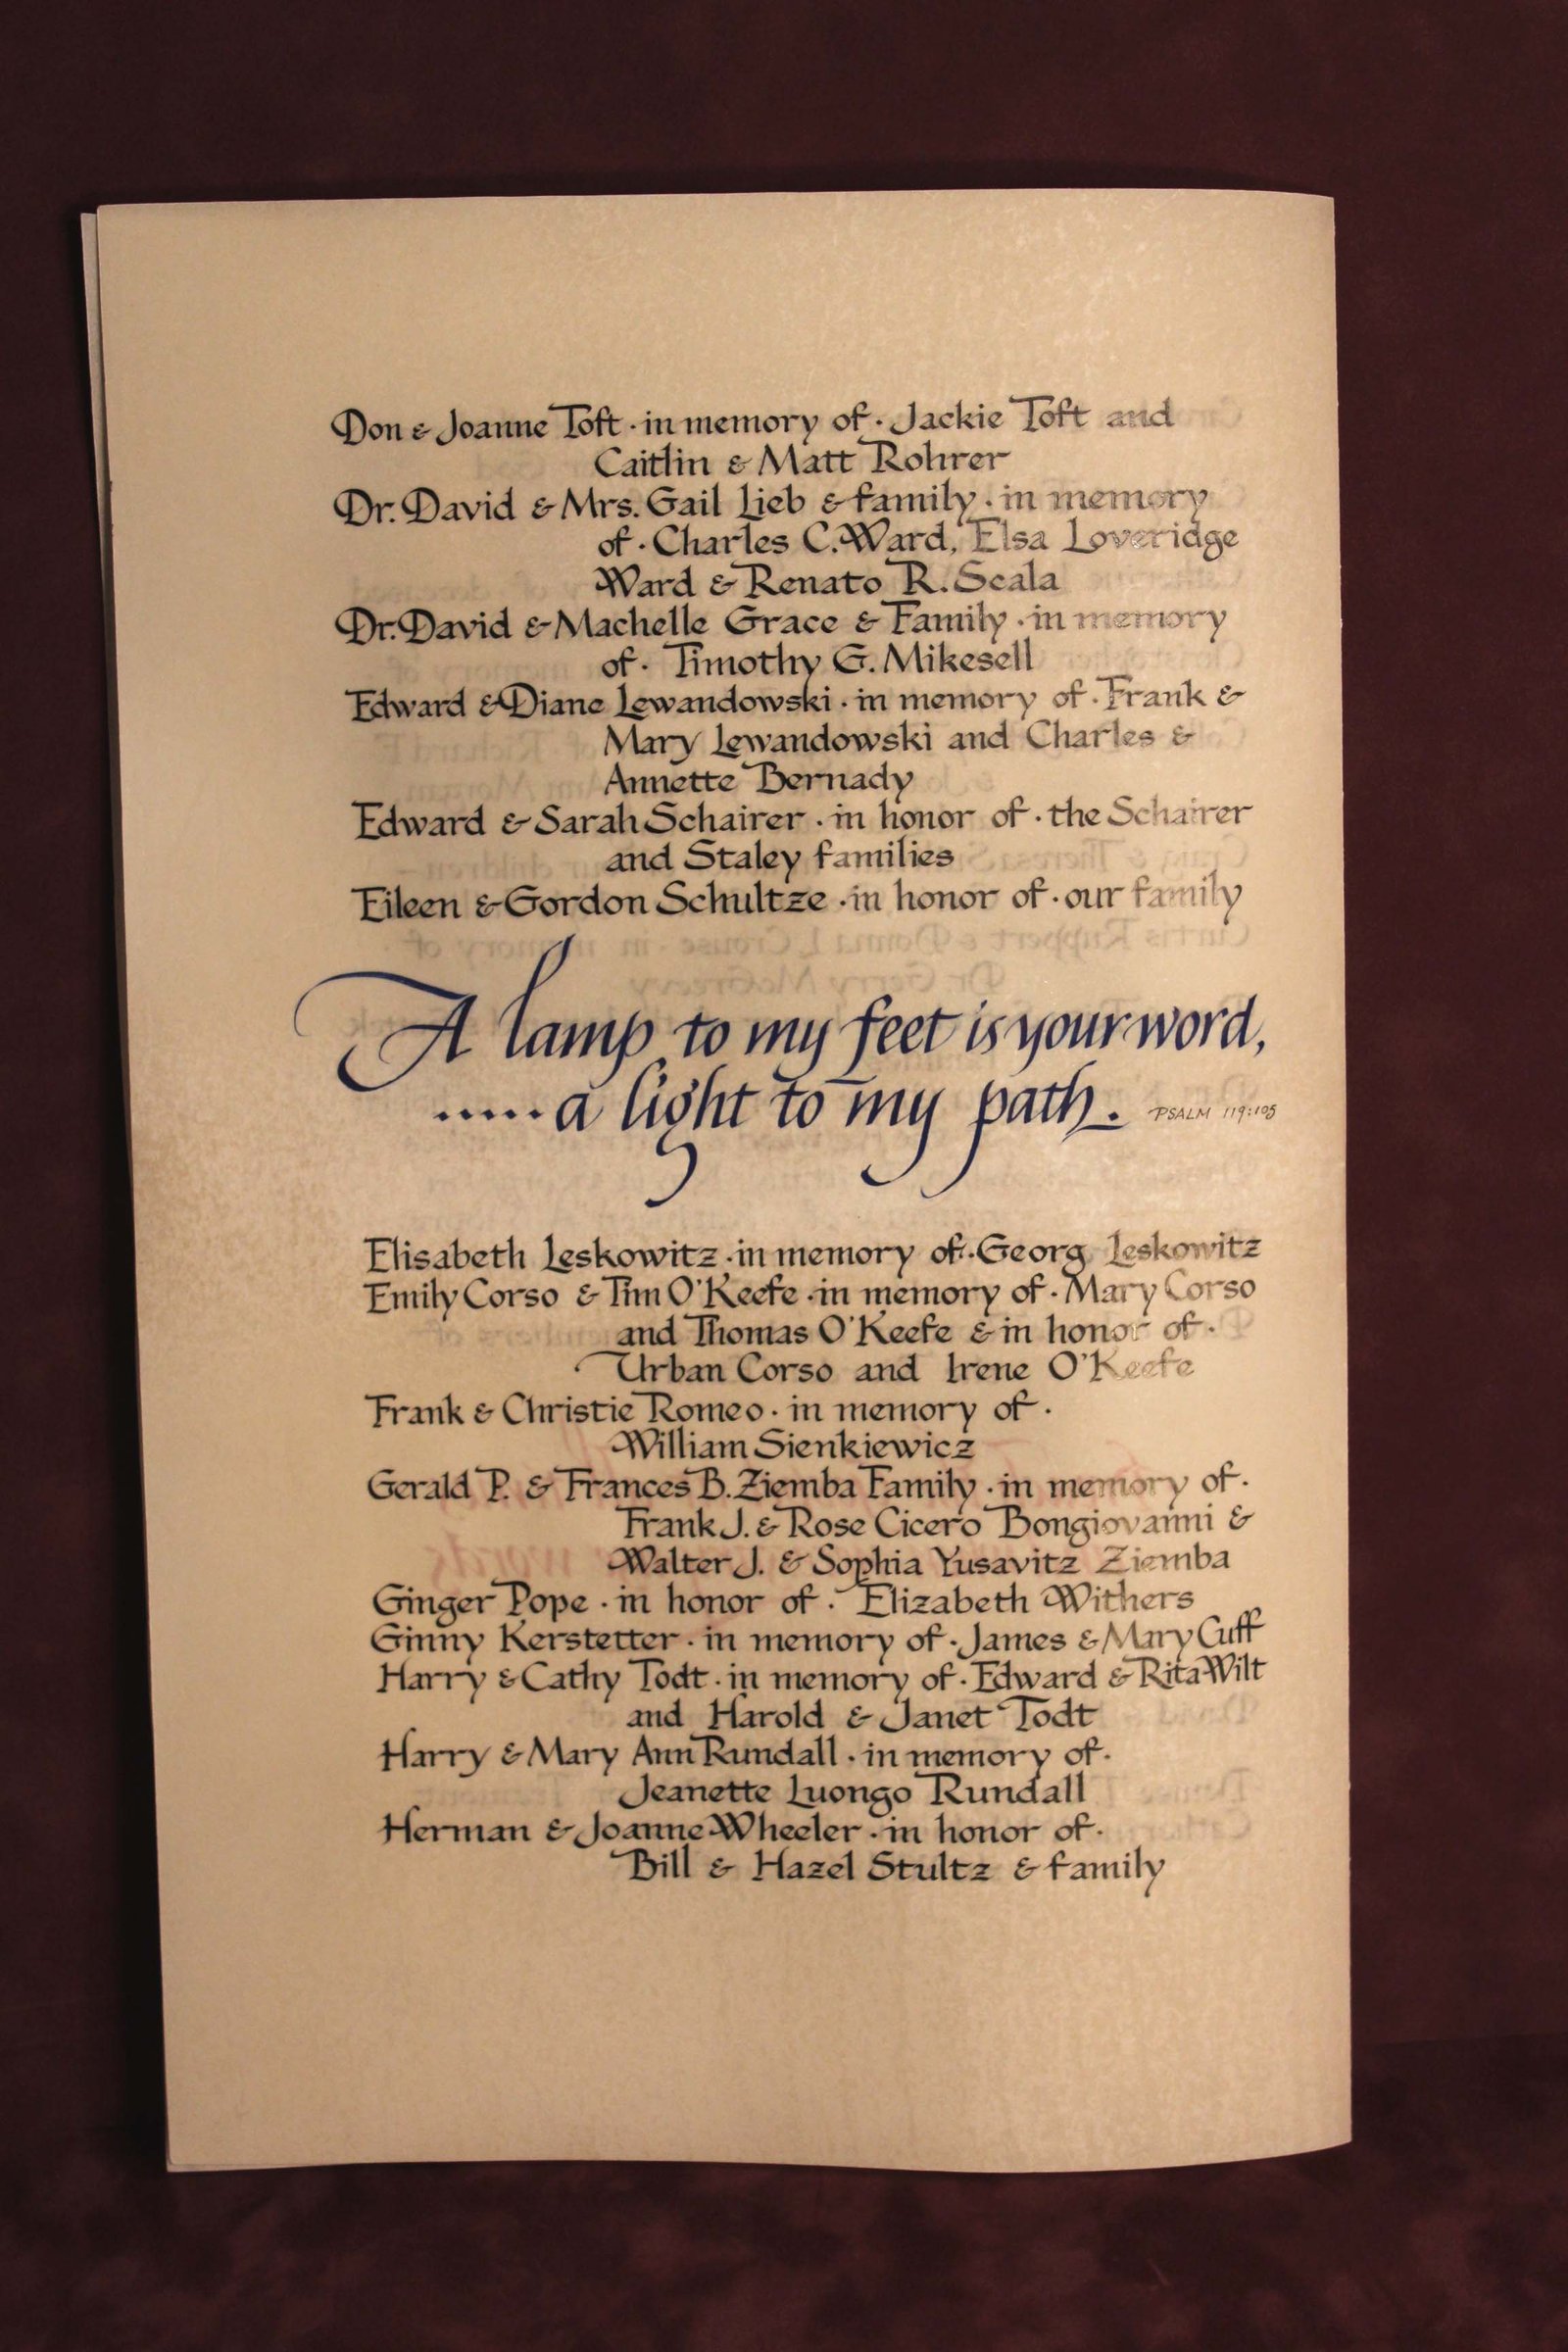 Don & Joanne Toft · in memory of · Jackie Toft and
Caitlin & Matt Rohrer
Dr. David & Mrs. Gail Lieb & family · in memory
of · Charles C. Ward, Elsa Loveridge
Ward & Renato R. Scala
Dr. David & Machelle Grace & Family · in memory
of · Timothy G. Mikesell
Edward & Diane Lewandowski · in memory of · Frank &
Mary Lewandowski and Charles &
Annette Bernady
Edward & Sarah Schairer · in honor of · the Schairer
and Staley families
Eileen & Gordon Schultze · in honor of · our family
A lamp to my feet is your word,
.....a light to my path. PSALM 119:105
Elisabeth Leskowitz · in memory of · Georg Leskowitz
Emily Corso & Tim O'Keefe · in memory of · Mary Corso
and Thomas O'Keefe & in honor of ·
Urban Corso and Irene O'Keefe
Frank & Christie Romeo · in memory of ·
William Sienkiewicz
Gerald P. & Frances B. Ziemba Family · in memory of ·
Frank J. & Rose Cicero Bongiovanni &
Walter J. & Sophia Yusavitz Ziemba
Ginger Pope · in honor of · Elizabeth Withers
Ginny Kerstetter · in memory of · James & Mary Cuff
Harry & Cathy Todt · in memory of · Edward & Rita Wilt
and Harold & Janet Todt
Harry & Mary Ann Rundall · in memory of ·
Jeanette Luongo Rundall
Herman & Joanne Wheeler · in honor of ·
Bill & Hazel Stultz & family